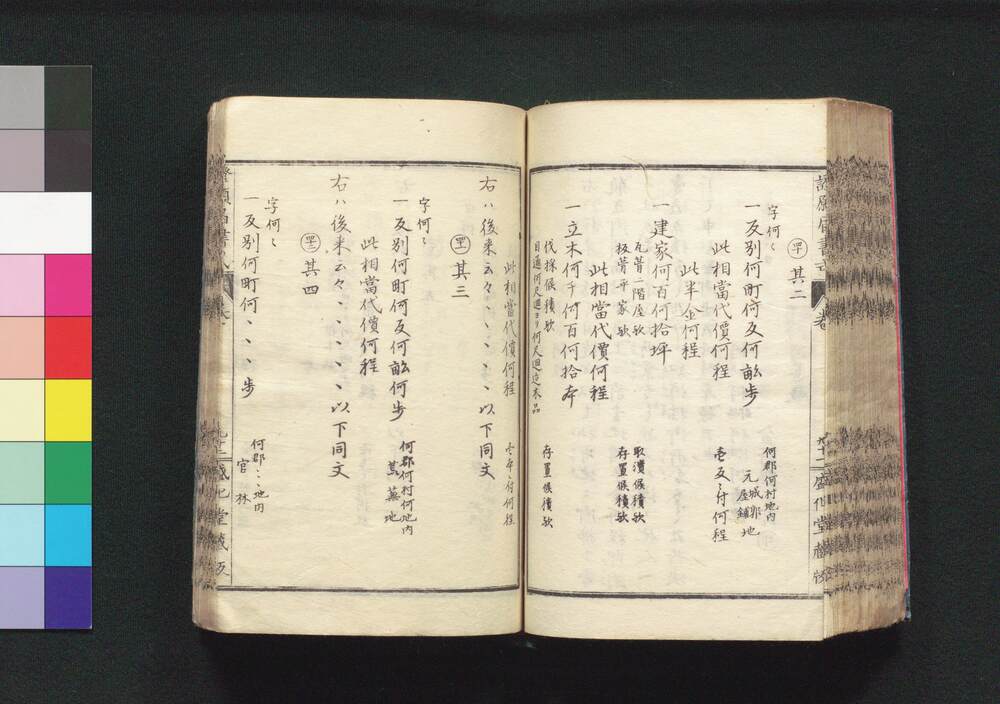 其二
字何〻
一反別何町何反何畝歩
何郡何村何地内
元城郭屋鋪地
此相當代價何程
壱反ニ付何程
此半金何程
一建家何百何拾坪
瓦葺二階屋歟
取潰候積歟
板葺平家歟
存置候積歟
此相當代價何程
一立木何千何百何拾本
伐採候積歟
存置候積歟
目通何尺廻ヨリ何尺廻迄木品
此相當代價何程
壱本ニ付何程
右ハ後来云々、、、、以下同文
其三
字何〻
一反別何町何反何畝何歩
何郡何村何地内
荒蕪地
此相當代價何程
右ハ後来云々、、、、以下同文
其四
字何〻
一反別何町何、、、歩
何郡、、地内
官林